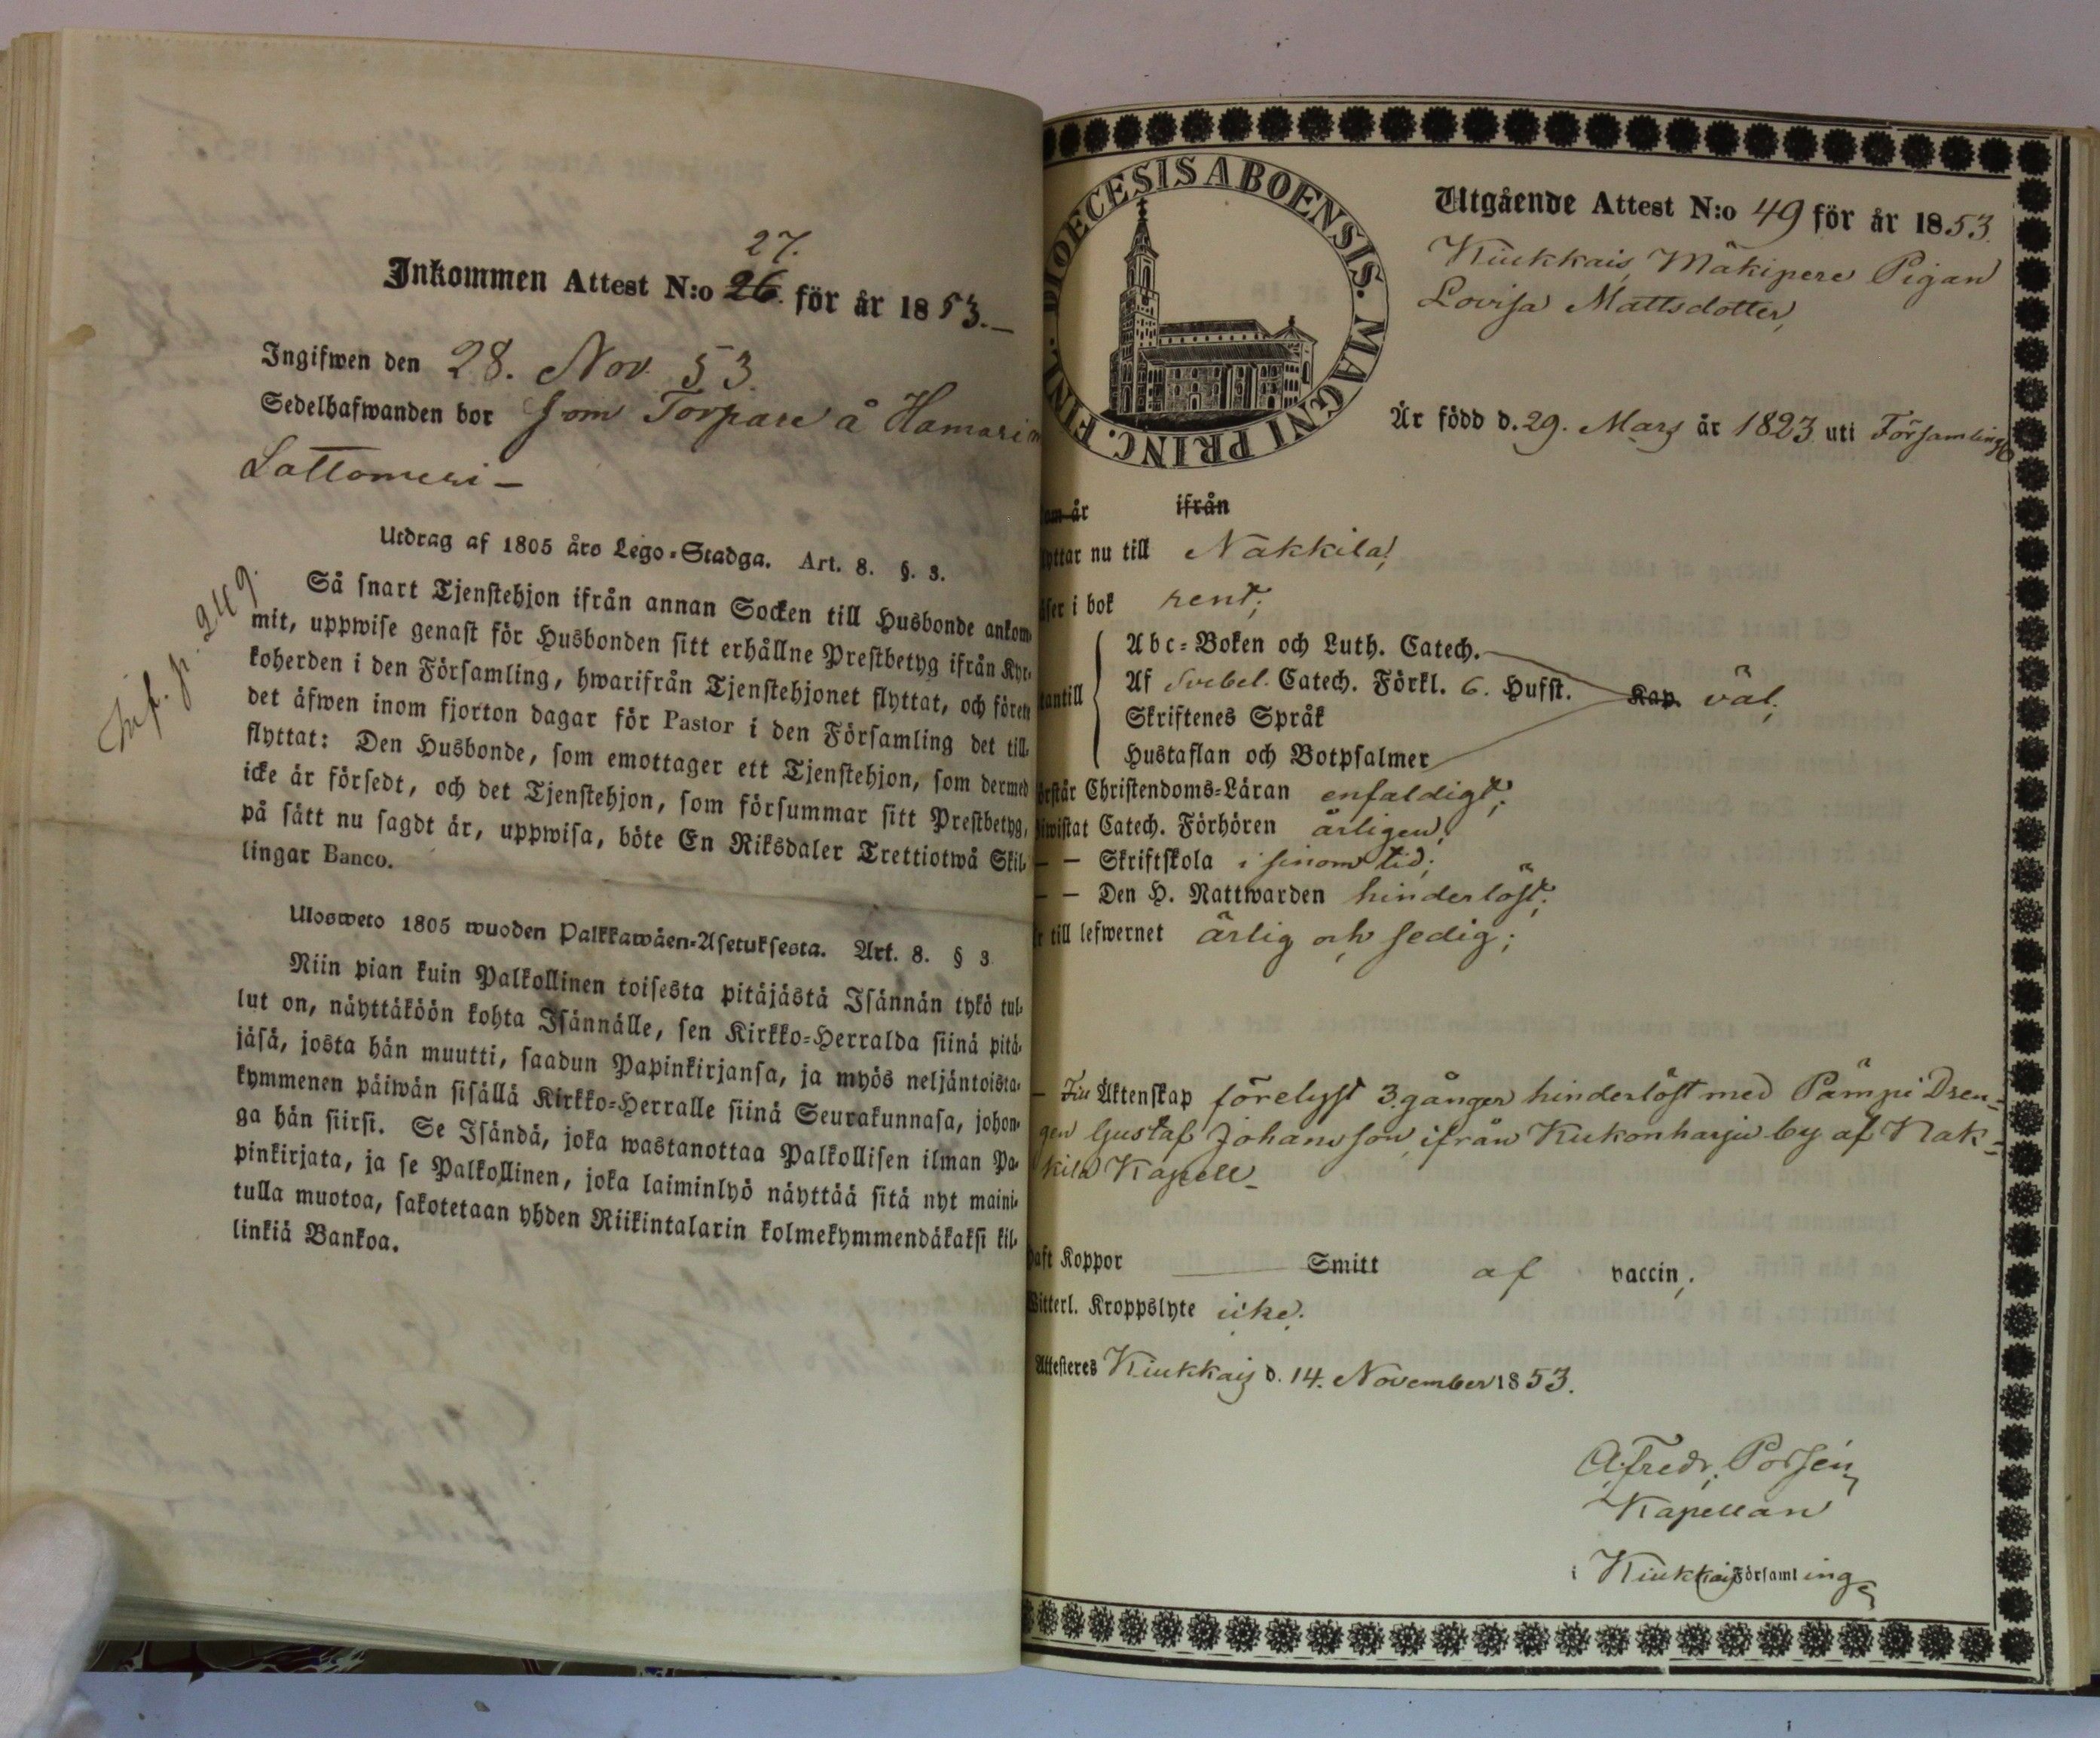 27.
Inkommen Attest N:o 26. för år 1853.—
Ingifwen den 28. Nov 53.
Sedelhafwanden bor som Torpare å Hamari
Lattomeri —
Utdrag af 1805 års Lego-Stadga. Art. 8. §. 3.
Så snart Tjenstehjon ifrån annan Socken till Husbonde ankom-
mit, uppwise genast för Husbonden sitt erhållne Prestbetyg ifrån Kyr-
koherden i den Församling, hwarifrån Tjenstehjonet flyttat, och förete
det äfwen inom fjorton dagar för Pastor i den Församling det till-
flyttat: Den Husbonde, som emottager ett Tjenstehjon, som dermed
icke är försedt, och det Tjenstehjon, som försummar sitt Prestbetyg,
på sätt nu sagdt är, uppwisa, böte En Riksdaler Trettiotwå Skil-
lingar Banco.
Inf. p. 249.
Ulosweto 1805 wuoden Palkkawäen-Asetuksesta. Art. 8. § 3
Niin pian kuin Palkollinen toisesta pitäjästä Isännän tykö tul-
lut on, näyttäköön kohta Isännälle, sen Kirkko-Herralda siinä pitä-
jäsä, josta hän muutti, saadun Papinkirjansa, ja myös neljäntoista-
kymmenen päiwän sisällä Kirkko-Herralle siinä Seurakunnasa, johon-
ga hän siirsi. Se Isändä, joka wastanottaa Palkollisen ilman Pa-
pinkirjata, ja se Palkollinen, joka laiminlyö näyttää sitä nyt maini-
tulla muotoa, sakotetaan yhden Riikintalarin kolmekymmendäkaksi kil-
linkiä Bankoa.
DIOECESIS ABOENSIS. MAGNI PRINC. FINL.
Utgående Attest N:o 49 för år 1853.
Kiukkais Mäkipere Pigan
Lovisa Mattsdotter,
Är född d. 29. Mars år 1823 uti Församlingen
om år ifrån
yttar nu till Nakkila,
äser i bok rent;
tantill
Abc-Boken och Luth. Catech.
Af Svebel. Catech. Förkl. 6. Hufst. Kap. väl;
Skriftenes Språk
Hustaflan och Botpsalmer
örstår Christendoms-Läran enfaldigt;
iwistat Catech. Förhören årligen,
— — Skriftskola i sinom tid;
— — Den H. Nattwarden hinderlöst;
r till lefwernet ärlig och sedig;
— Till Äktenskap förelyst 3. gånger hinderlöst med Pämpi Dren-
gen Gustaf Johansson, ifrån Kukonharju by af Nak-
kila Kapell —
haft Koppor Smitt af vaccin;
Witterl. Kroppslyte icke.
Attesteres Kiukkais d. 14. November 1853.
A. Fredr. Porsén,
Kapellan
i Kiukkais Församling